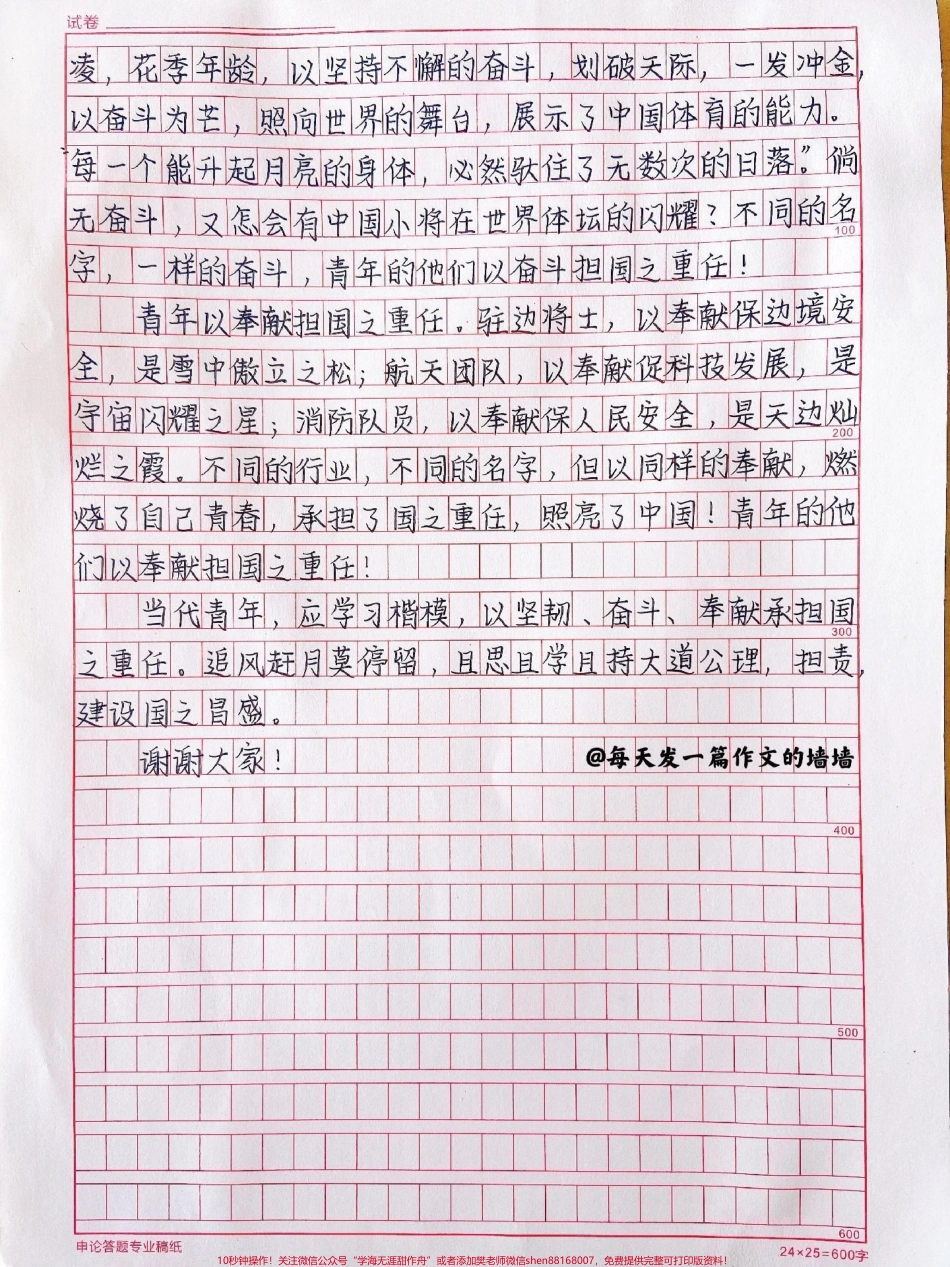 试卷
凌，花季年龄，以坚持不懈的奋斗，划破天际，一发冲金，
以奋斗为芒，照向世界的舞台，展示了中国体育的能力。
“每一个能升起月亮的身体，必然驮住了无数次的日落。”倘
无奋斗，又怎会有中国小将在世界体坛的闪耀？不同的名
100
字，一样的奋斗，青年的他们以奋斗担国之重任！
青年以奉献担国之重任。驻边将士，以奉献保边境安
全，是雪中傲立之松；航天团队，以奉献促科技发展，是
宇宙闪耀之星；消防队员，以奉献保人民安全，是天边灿
200
烂之霞。不同的行业，不同的名字，但以同样的奉献，燃
烧了自己青春，承担了国之重任，照亮了中国！青年的他
们以奉献担国之重任！
当代青年，应学习楷模，以坚韧、奋斗、奉献承担国
300
之重任。追风赶月莫停留，且思且学且持大道公理，担责，
建设国之昌盛。
谢谢大家！
@每天发一篇作文的墙墙
400
500
600
申论答题专业稿纸
24×25=600字
10秒钟操作！关注微信公众号“学海无涯甜作舟”或者添加樊老师微信shen88168007，免费提供完整可打印版资料！